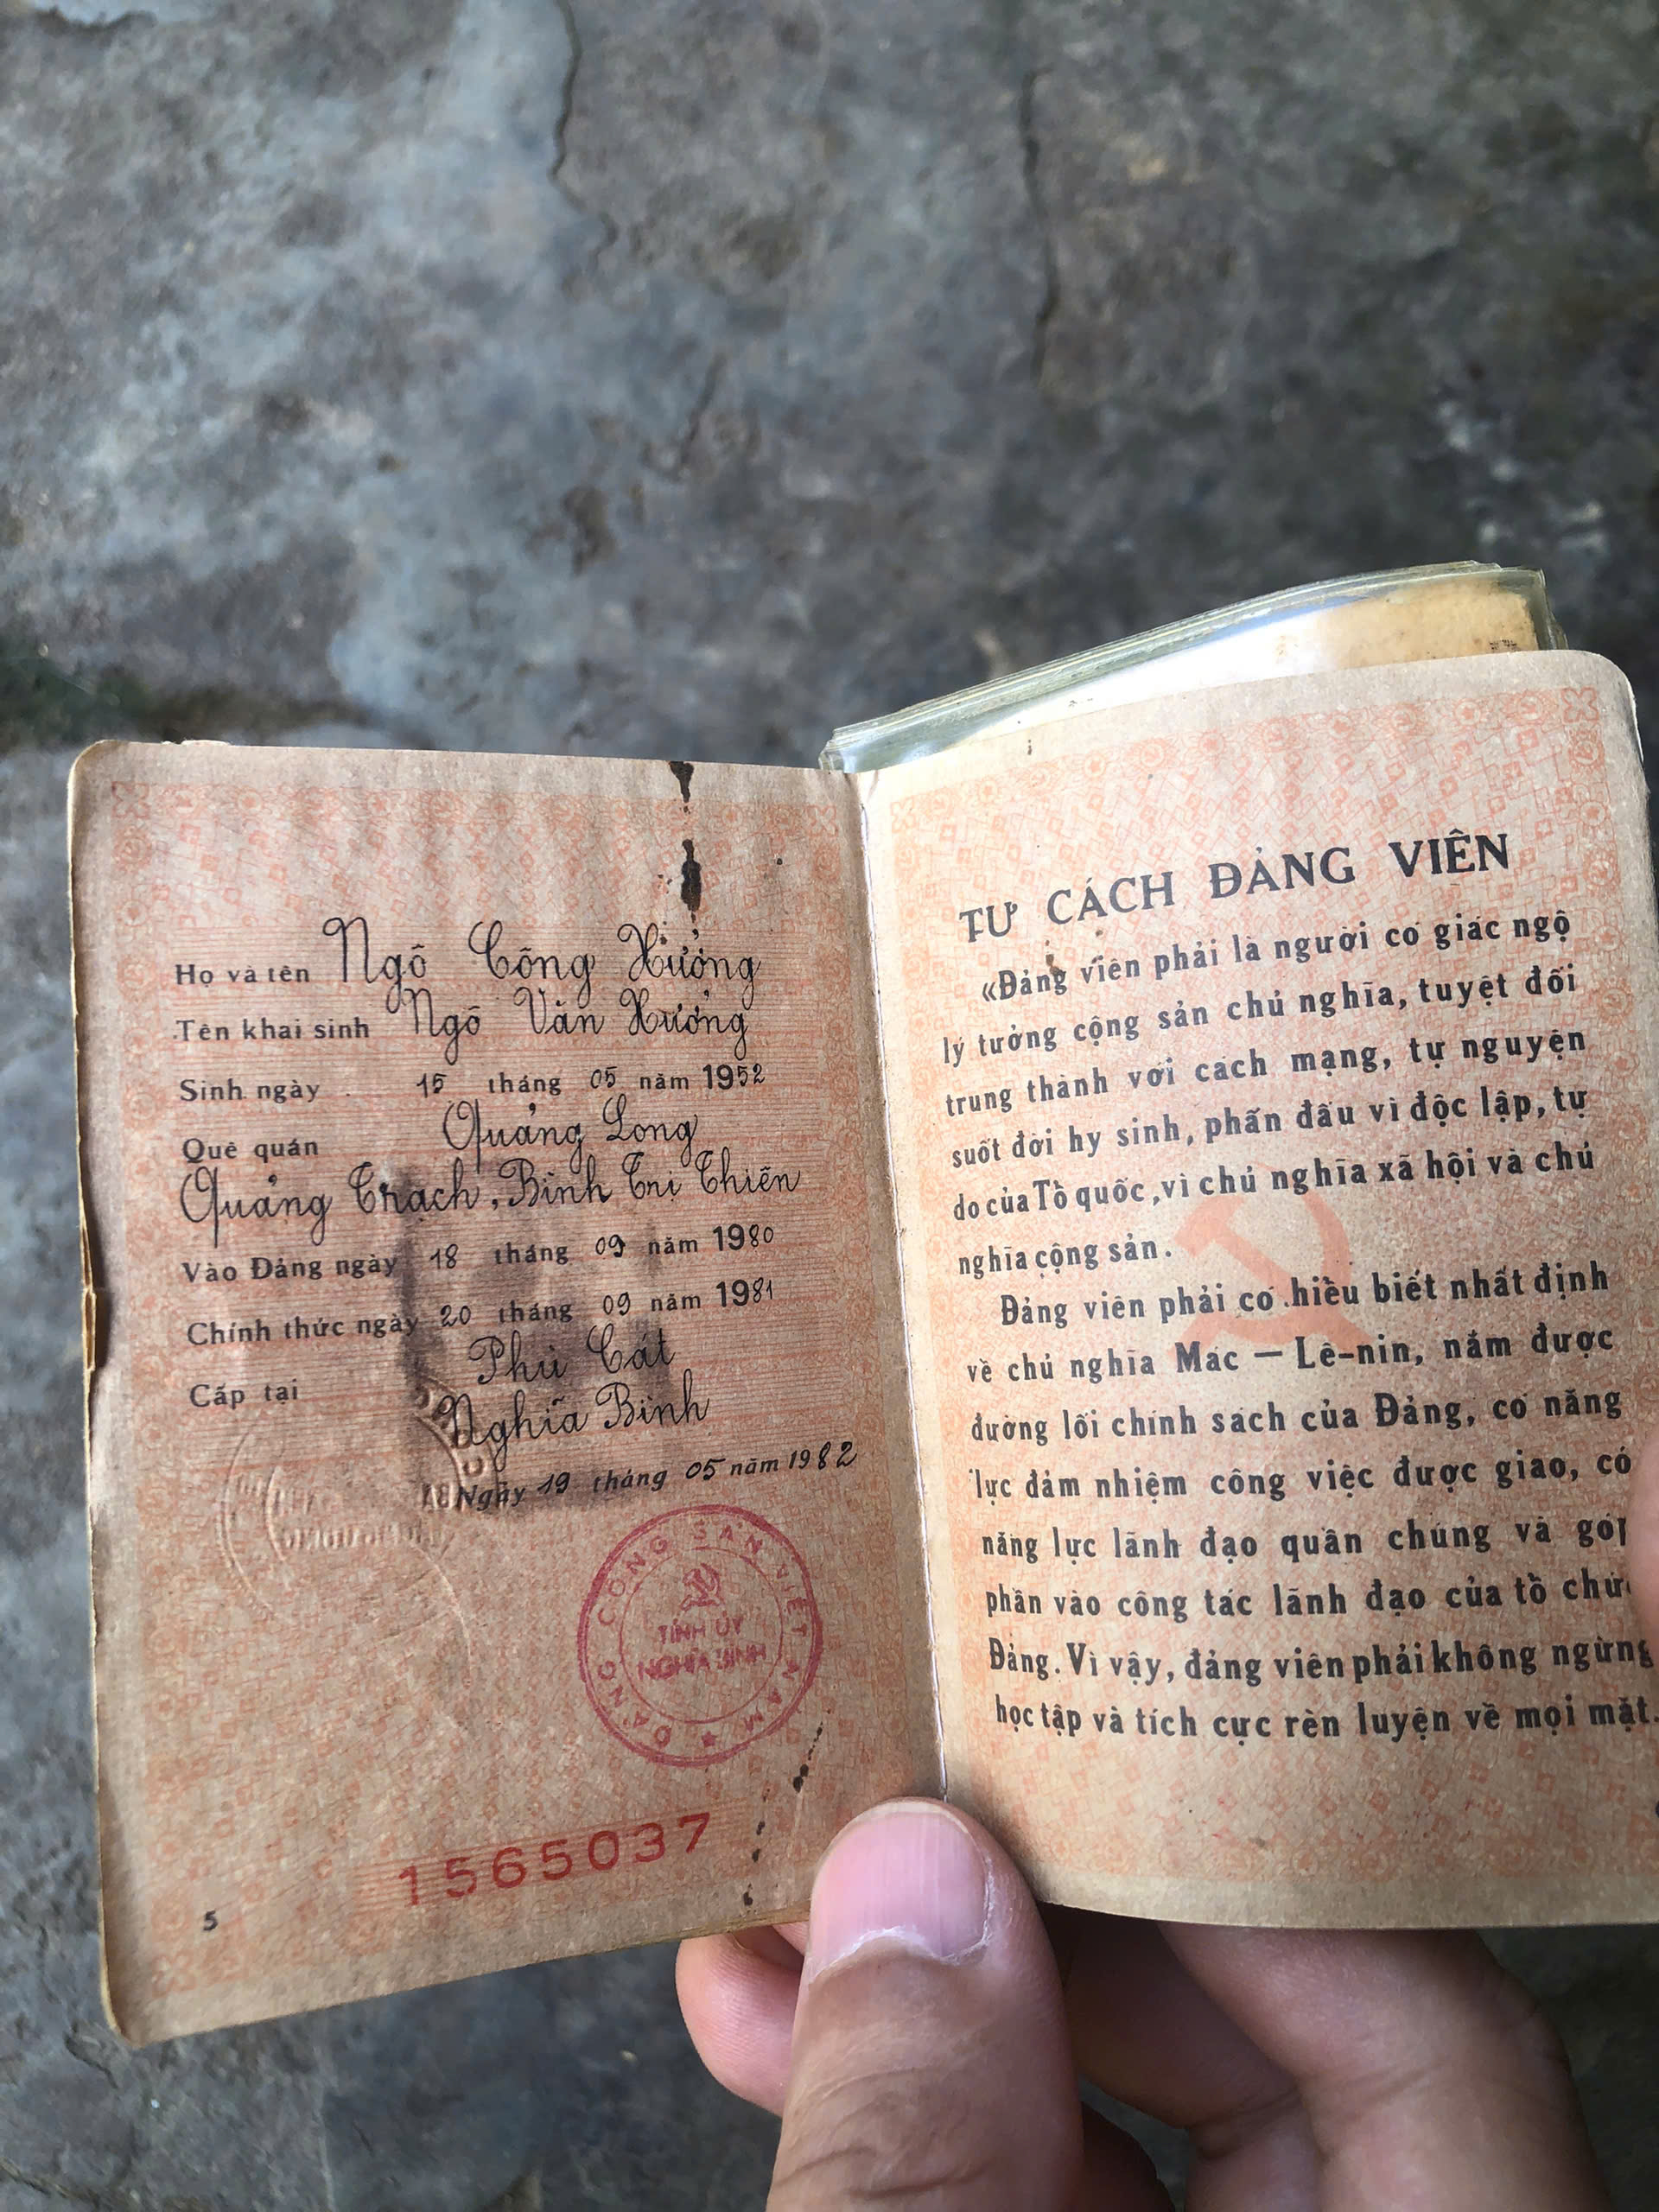 Họ và tên Ngô Công Hưởng
Tên khai sinh Ngô Văn Hương
Sinh ngày 15 tháng 05 năm 1952
Quê quán Quảng Long
Quảng Trạch, Bình Trị Thiên
Vào Đảng ngày 18 tháng 09 năm 1980
Chính thức ngày 20 tháng 09 năm 1981
Cấp tại Phù Cát
Nghĩa Bình
Ngày 19 tháng 05 năm 1982
ĐẢNG CỘNG SẢN VIỆT NAM
TỈNH ỦY
NGHĨA BÌNH
1565037
5
TƯ CÁCH ĐẢNG VIÊN
«Đảng viên phải là người có giác ngộ
lý tưởng cộng sản chủ nghĩa, tuyệt đối
trung thành với cách mạng, tự nguyện
suốt đời hy sinh, phấn đấu vì độc lập, tự
do của Tổ quốc, vì chủ nghĩa xã hội và chủ
nghĩa cộng sản.
Đảng viên phải có hiểu biết nhất định
về chủ nghĩa Mác — Lê-nin, nắm được
đường lối chính sách của Đảng, có năng
lực đảm nhiệm công việc được giao, có
năng lực lãnh đạo quần chúng và góp
phần vào công tác lãnh đạo của tổ chức
Đảng. Vì vậy, đảng viên phải không ngừng
học tập và tích cực rèn luyện về mọi mặt.